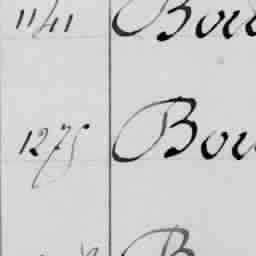 1141 Bou
1275 Bou
B